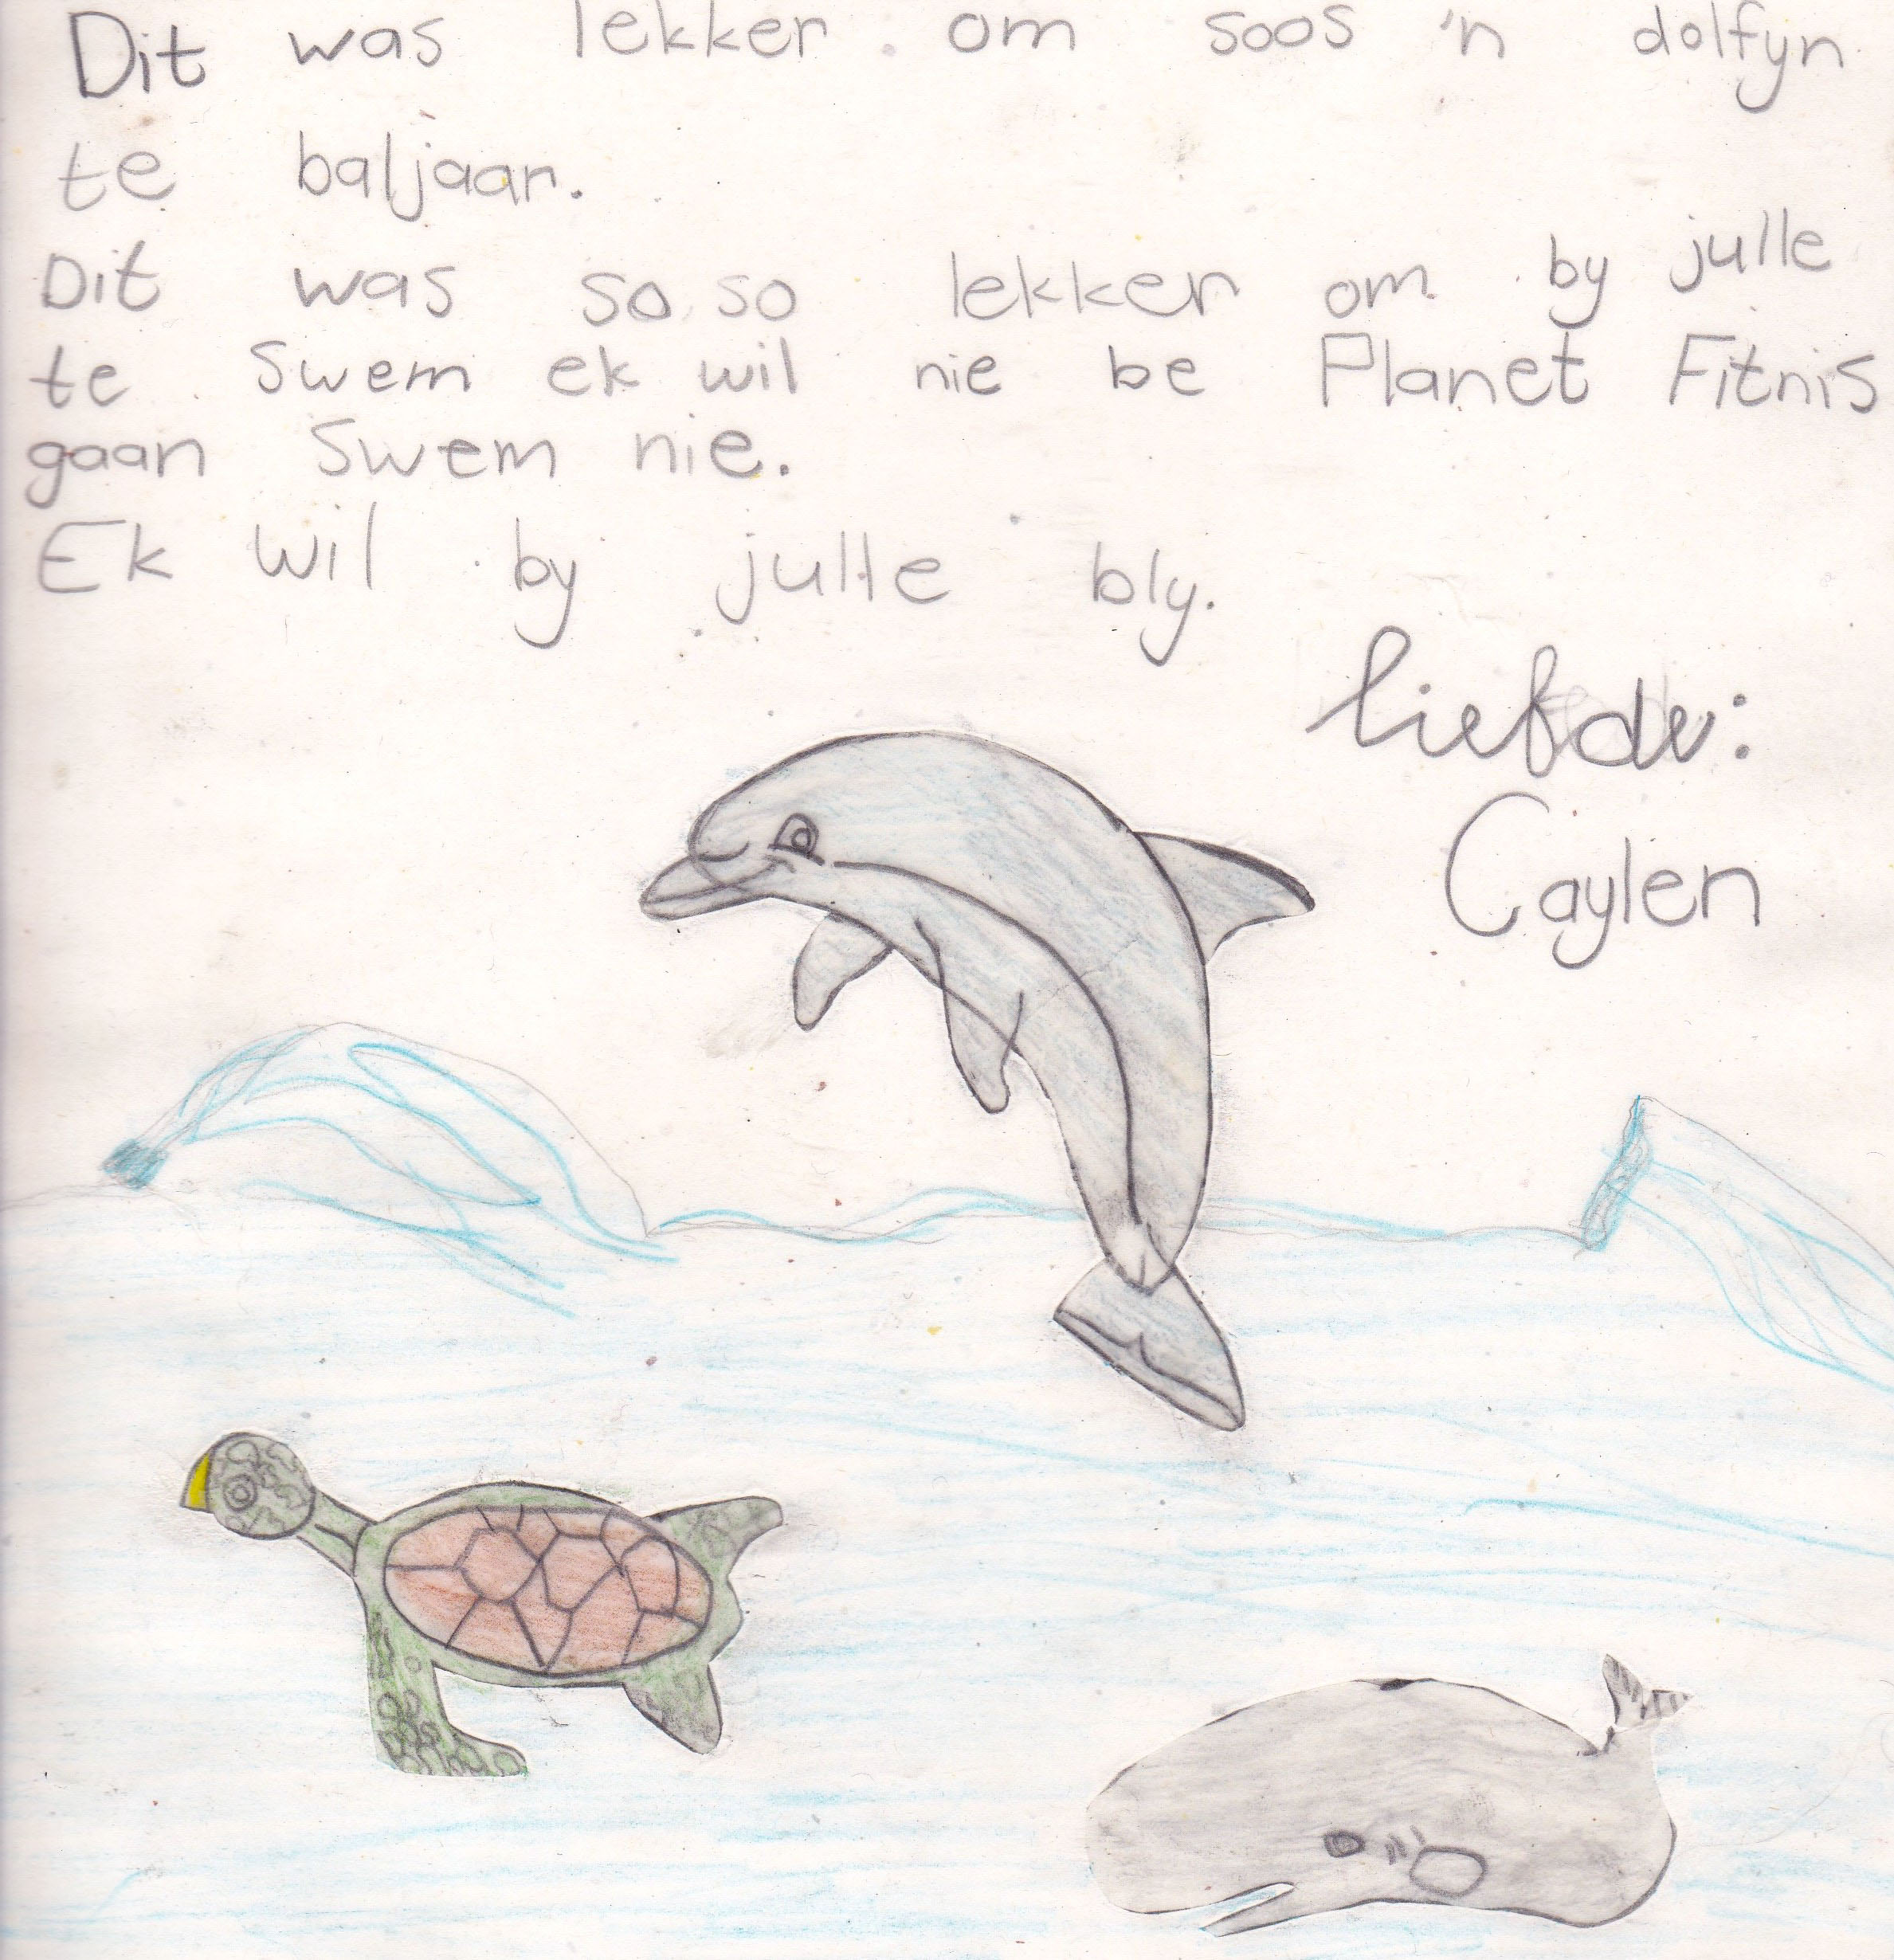 Dit was lekker om soos 'n dolfyn
te baljaar.
Dit was so so lekker om by julle
te swem ek wil nie be Planet Fitnis
gaan swem nie.
Ek wil by julle bly.
liefde:
Caylen